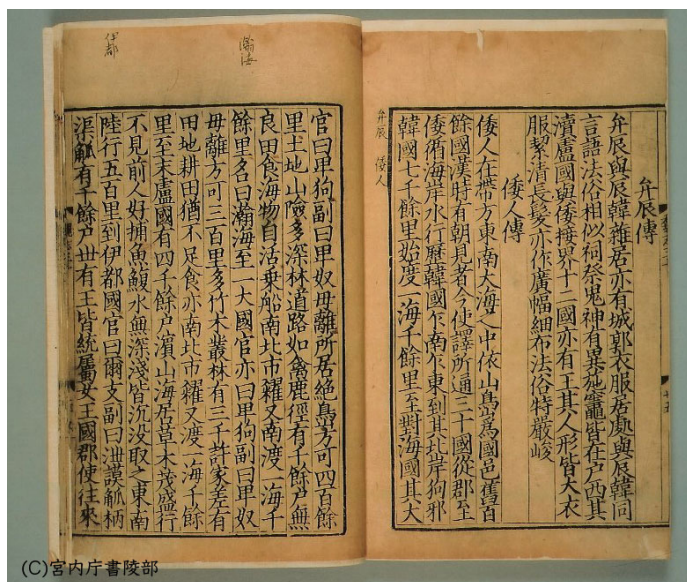 弁辰傳
弁辰與辰韓雜居亦有城郭衣服居處與辰韓同
言語法俗相似祠祭鬼神有異施竈皆在戸西其
瀆盧國與倭接界十二國亦有王其人形皆大衣
服絜清長髮亦作廣幅細布法俗特嚴峻
倭人傳
倭人在帶方東南大海之中依山㠀爲國邑舊百
餘國漢時有朝見者今使譯所通三十國從郡至
倭循海岸水行歷韓國乍南乍東到其北岸狗邪
韓國七千餘里始度一海千餘里至對海國其大
弁辰 倭人
瀚海
伊都
官曰卑狗副曰卑奴毋離所居絶㠀方可四百餘
里土地山險多深林道路如禽鹿徑有千餘戸無
良田食海物自活乗船南北市糴又南渡一海千
餘里名曰瀚海至一大國官亦曰卑狗副曰卑奴
毋離方可三百里多竹木叢林有三千許家差有
田地耕田猶不足食亦南北市糴又渡一海千餘
里至末盧國有四千餘戸濱山海居草木茂盛行
不見前人好捕魚鰒水無深淺皆沉没取之東南
陸行五百里到伊都國官曰爾支副曰泄謨觚柄
渠觚有千餘戸丗有王皆統屬女王國郡使往來
(C)宮内庁書陵部